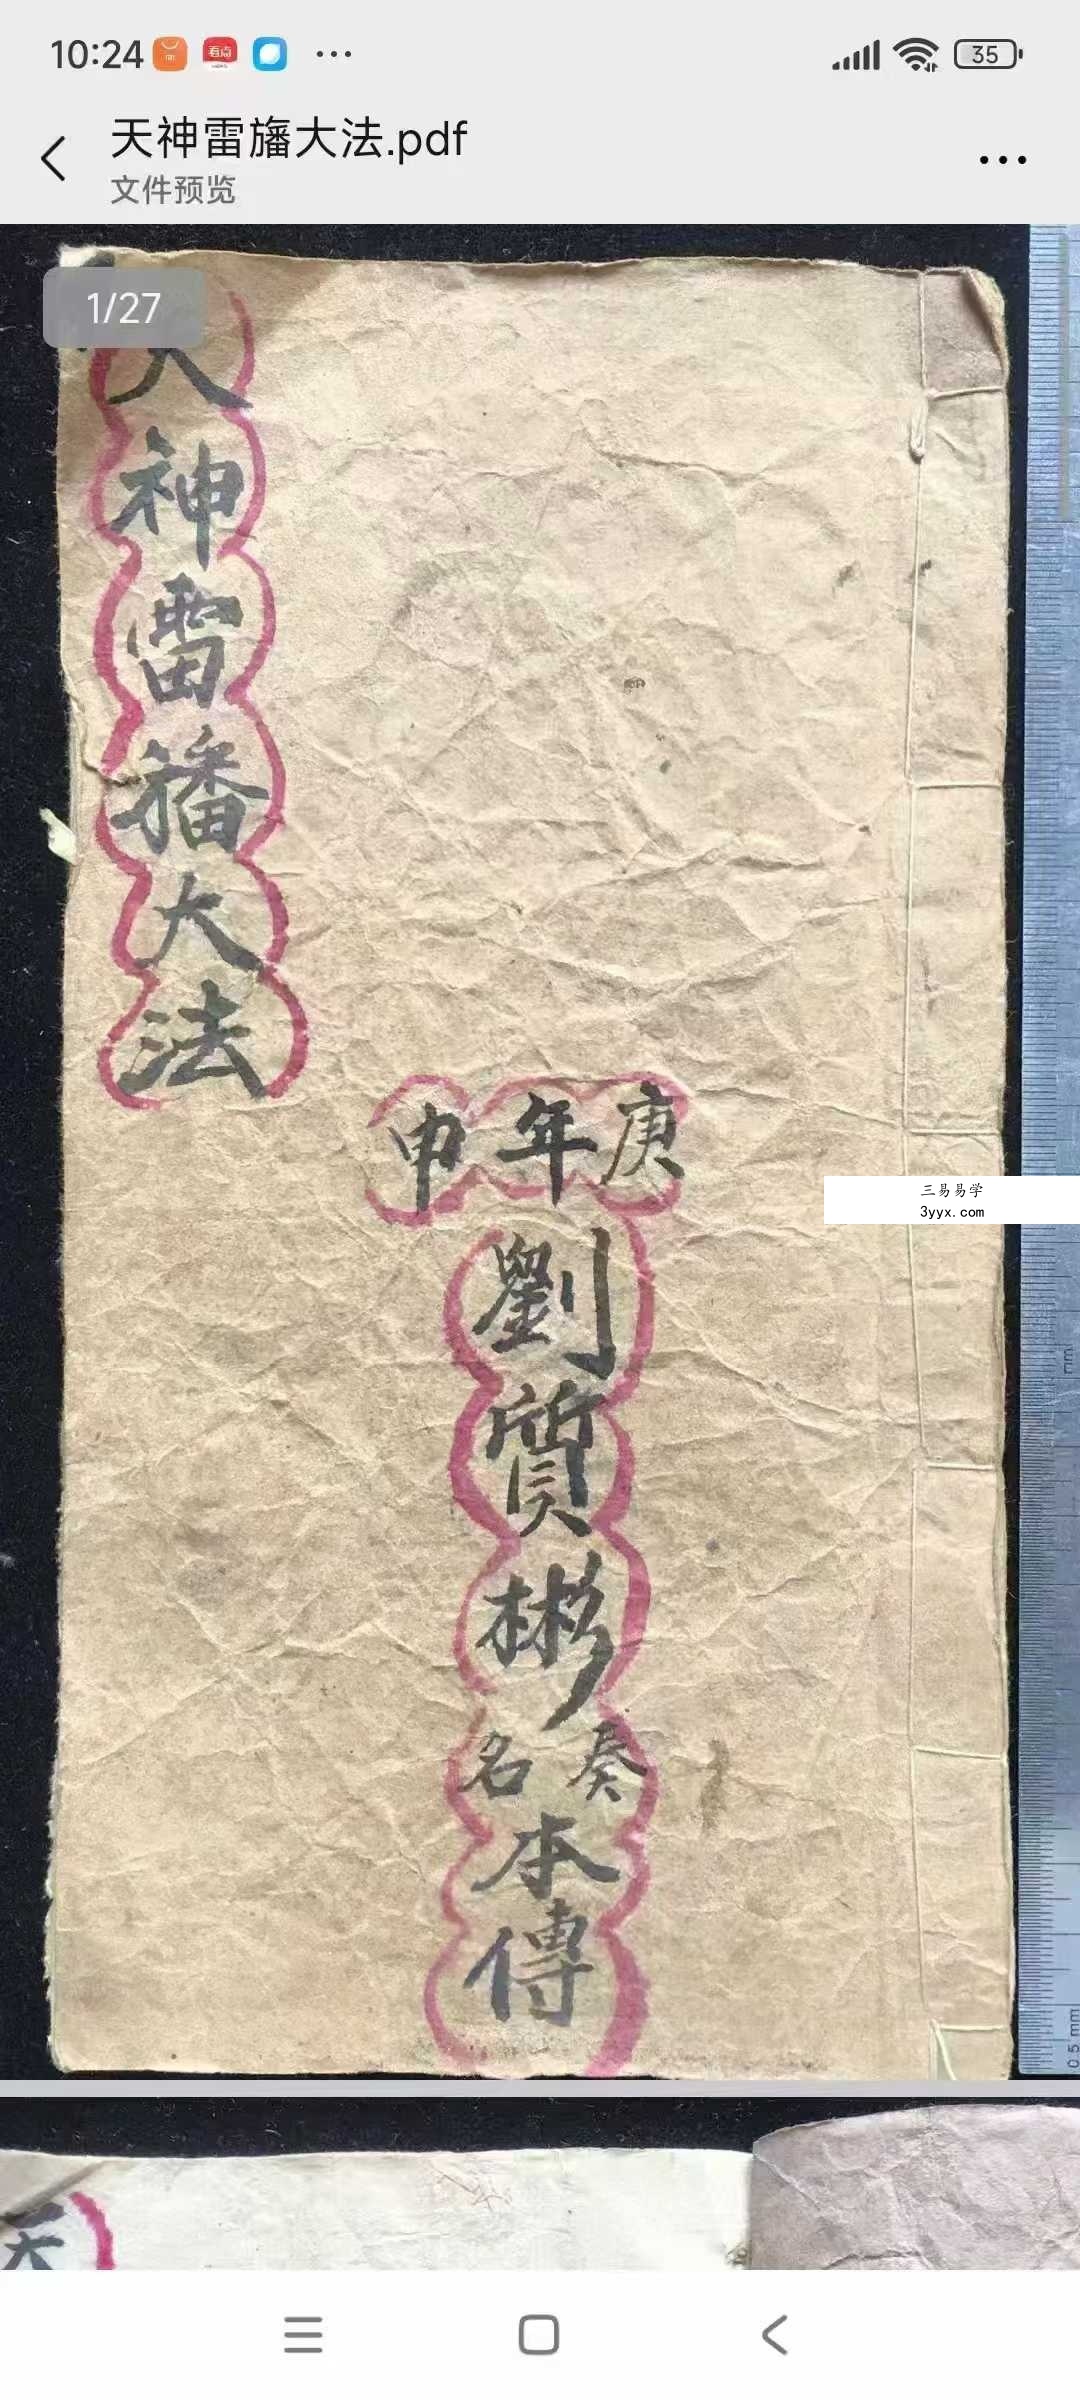 10:24
看点
35
天神雷旛大法.pdf
文件预览
1/27
天神雷旛大法
庚年申
劉質彬
奏名
本傳
三易易学
3yyx.com
mm
0.5 mm
天